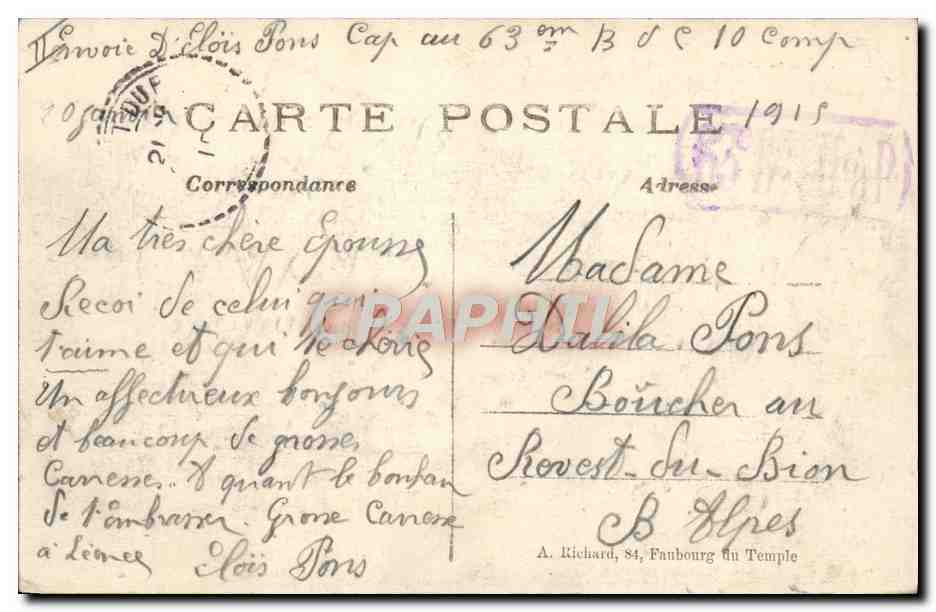 Envoie D'Eloïs Pons Cap au 63em B d C 10 Comp
CARTE POSTALE
1915
Correspondance
Adresse
Ma très chère Epousse
Recoi de celui qui
t'aime et qui te chérie
Un affectueux bonjours
et beaucoup de grosses
Carresses. & quant le bonheur
de t'embrasser. Grosse Carresse
à Léonce
Eloïs Pons
Madame
Dalila Pons
Boucher au
Revest-du-Bion
B Alpes
A. Richard, 84, Faubourg du Temple
CRAPHTI